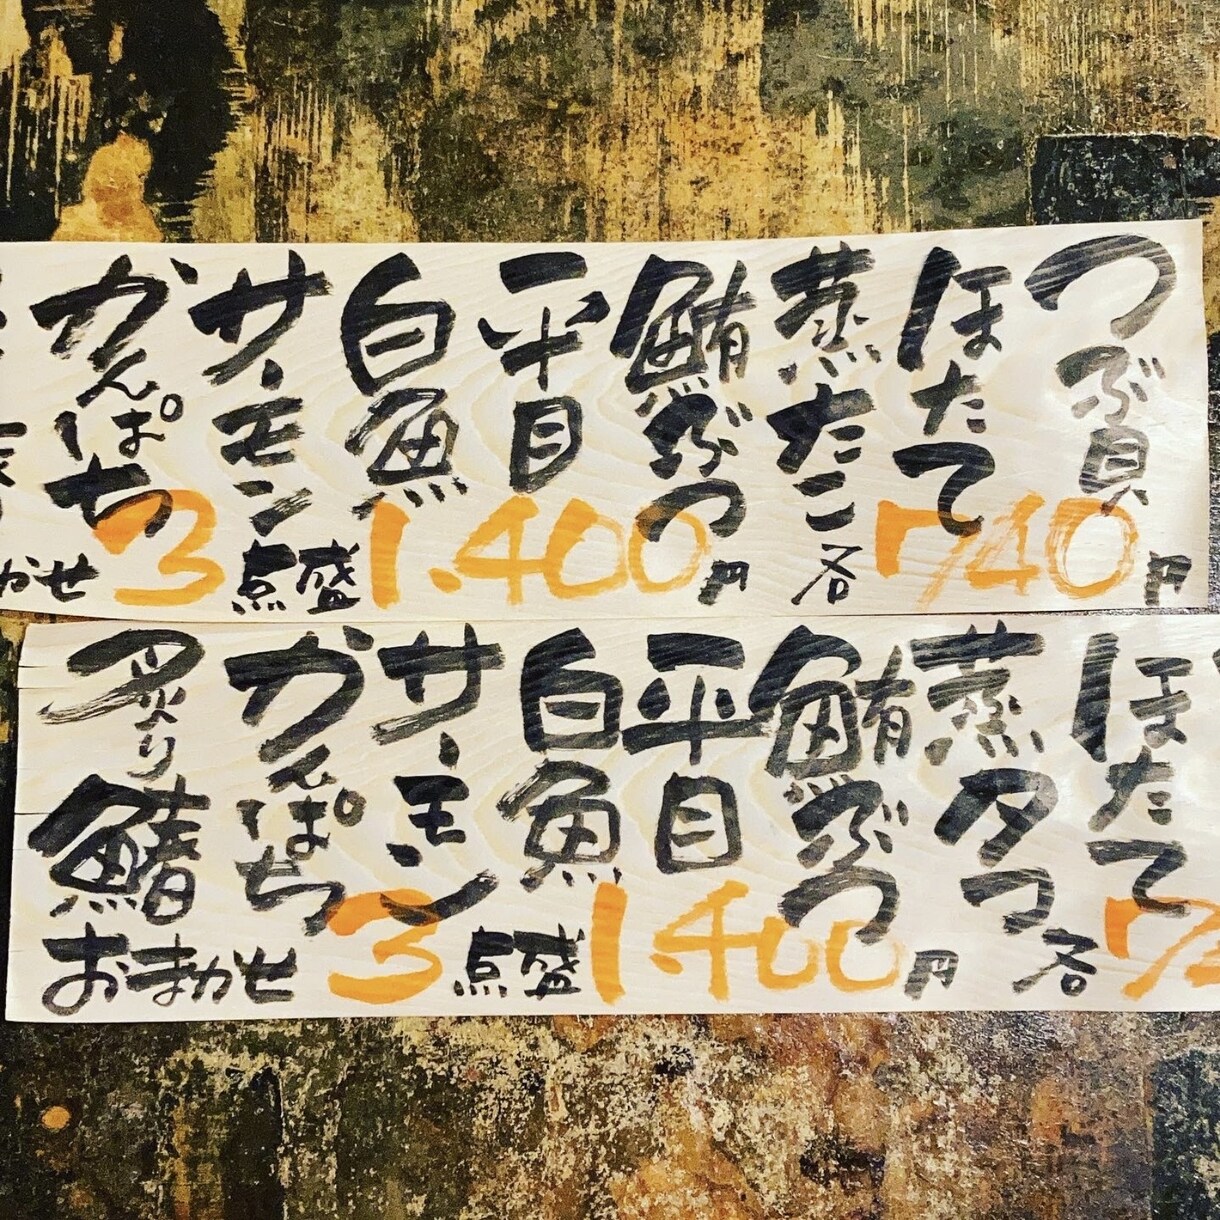 つぶ貝
ほたて
蒸たこ
鮪ぶつ
平目
白魚
サーモン
かんぱち
かせ3点盛1.400円
各740円
ほたて
蒸タコ
鮪ぶつ
平目
白魚
サーモン
かんぱち
炙り鰆
おまかせ3点盛1.400円
各7